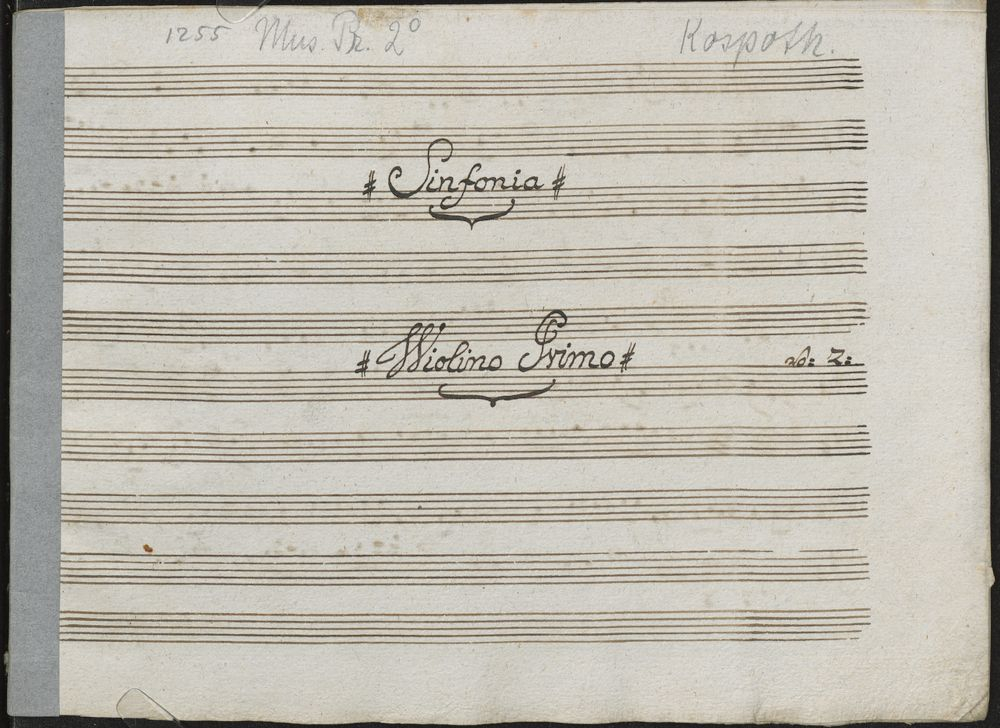 1255 Mus. Pr. 2° Kospoth.
# Sinfonia #
# Wiolino Primo #
No: 2: